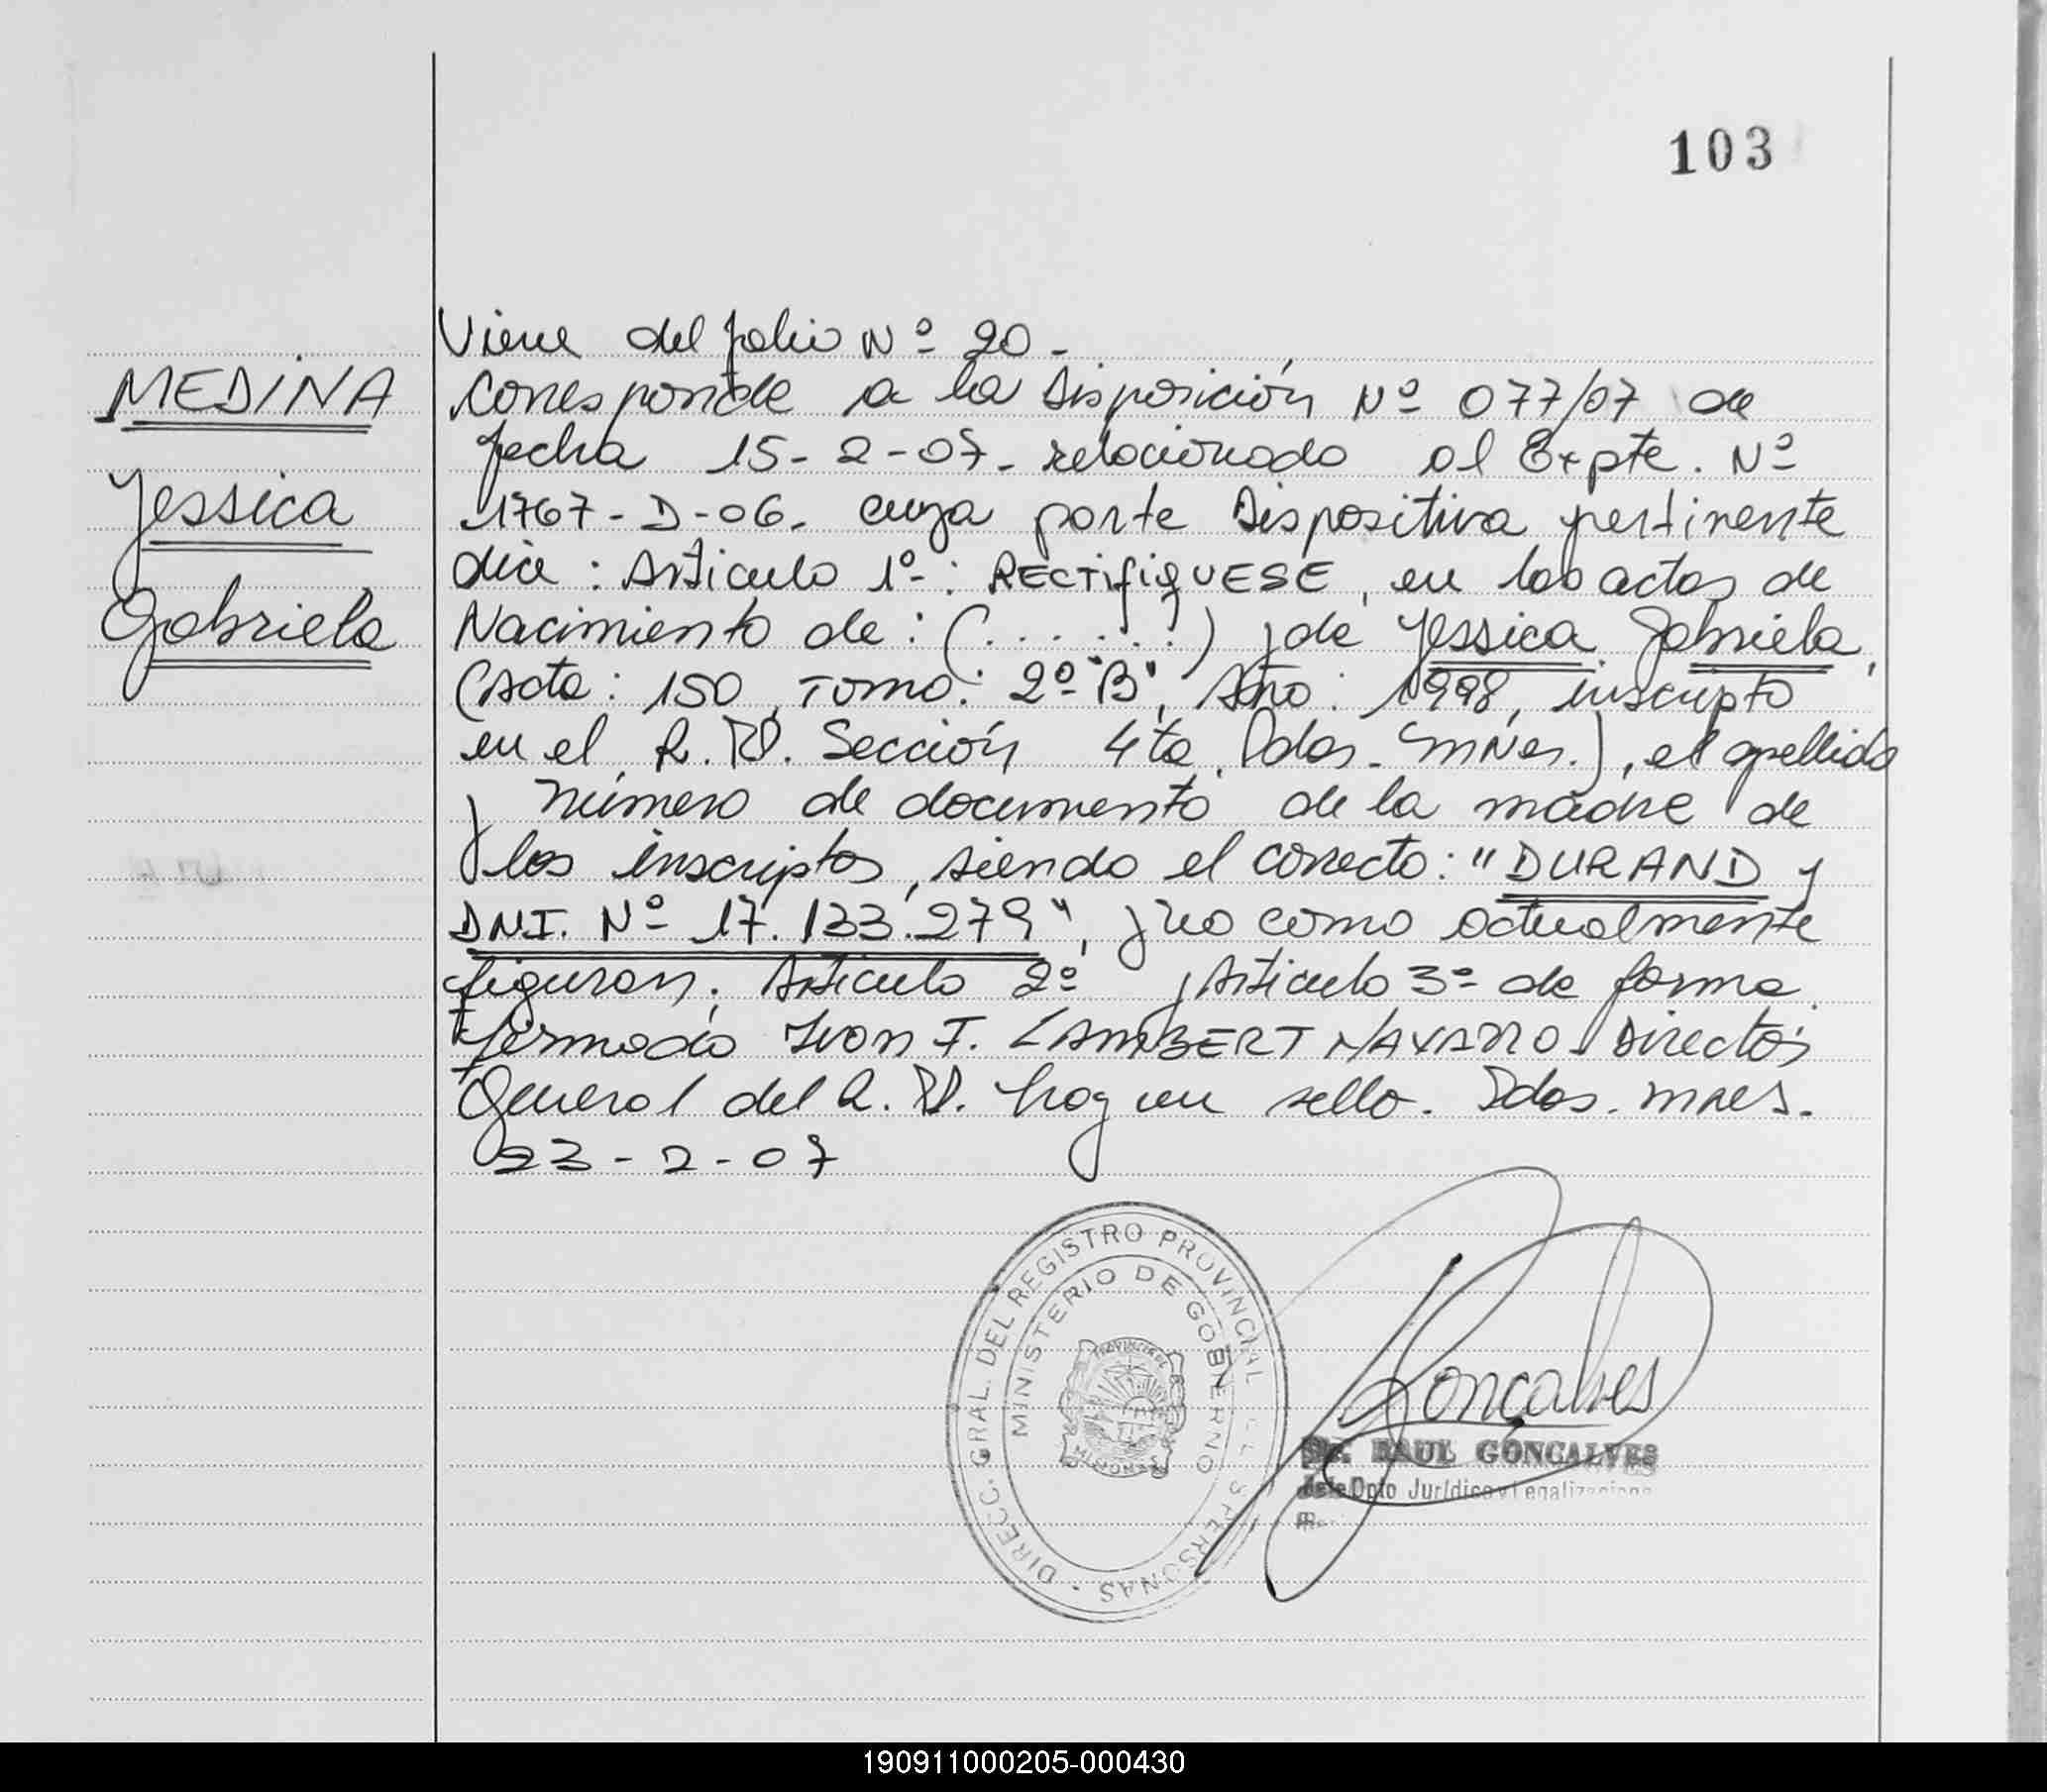 103
MEDINA
Jessica
Gabriela
Viene del folio Nº 20-
Corresponde a la Disposición Nº 077/07 de
fecha 15-2-07- relacionado al Expte. Nº
1767-D-06. cuya parte Dispositiva pertinente
dice: Articulo 1º-: RECTIFIQUESE, en las actas de
Nacimiento de: (.......) y de Jessica Gabriela,
(Acta: 150, Tomo: 2º "B", Año: 1998, inscripta
en el R. P. Sección 4ta. Pdas. Mnes.), el apellido
y número de documento de la madre de
los inscriptos, siendo el correcto: "DURAND y
DNI. Nº 17.133.279", y no como actualmente
figuran. Articulo 2º y Articulo 3º de forma.
Firmado Ivon I. LAMBERT NAVARRO Director
General del R. P. hay un sello. Pdas. mnes.
23-2-07
DIRECC. GRAL. DEL REGISTRO PROVINCIAL DE LAS PERSONAS
MINISTERIO DE GOBIERNO
PROVINCIA DE
MISIONES
Gonçalves
Dr. RAUL GONCALVES
Jefe Dpto Jurídico y Legalizaciones
190911000205-000430